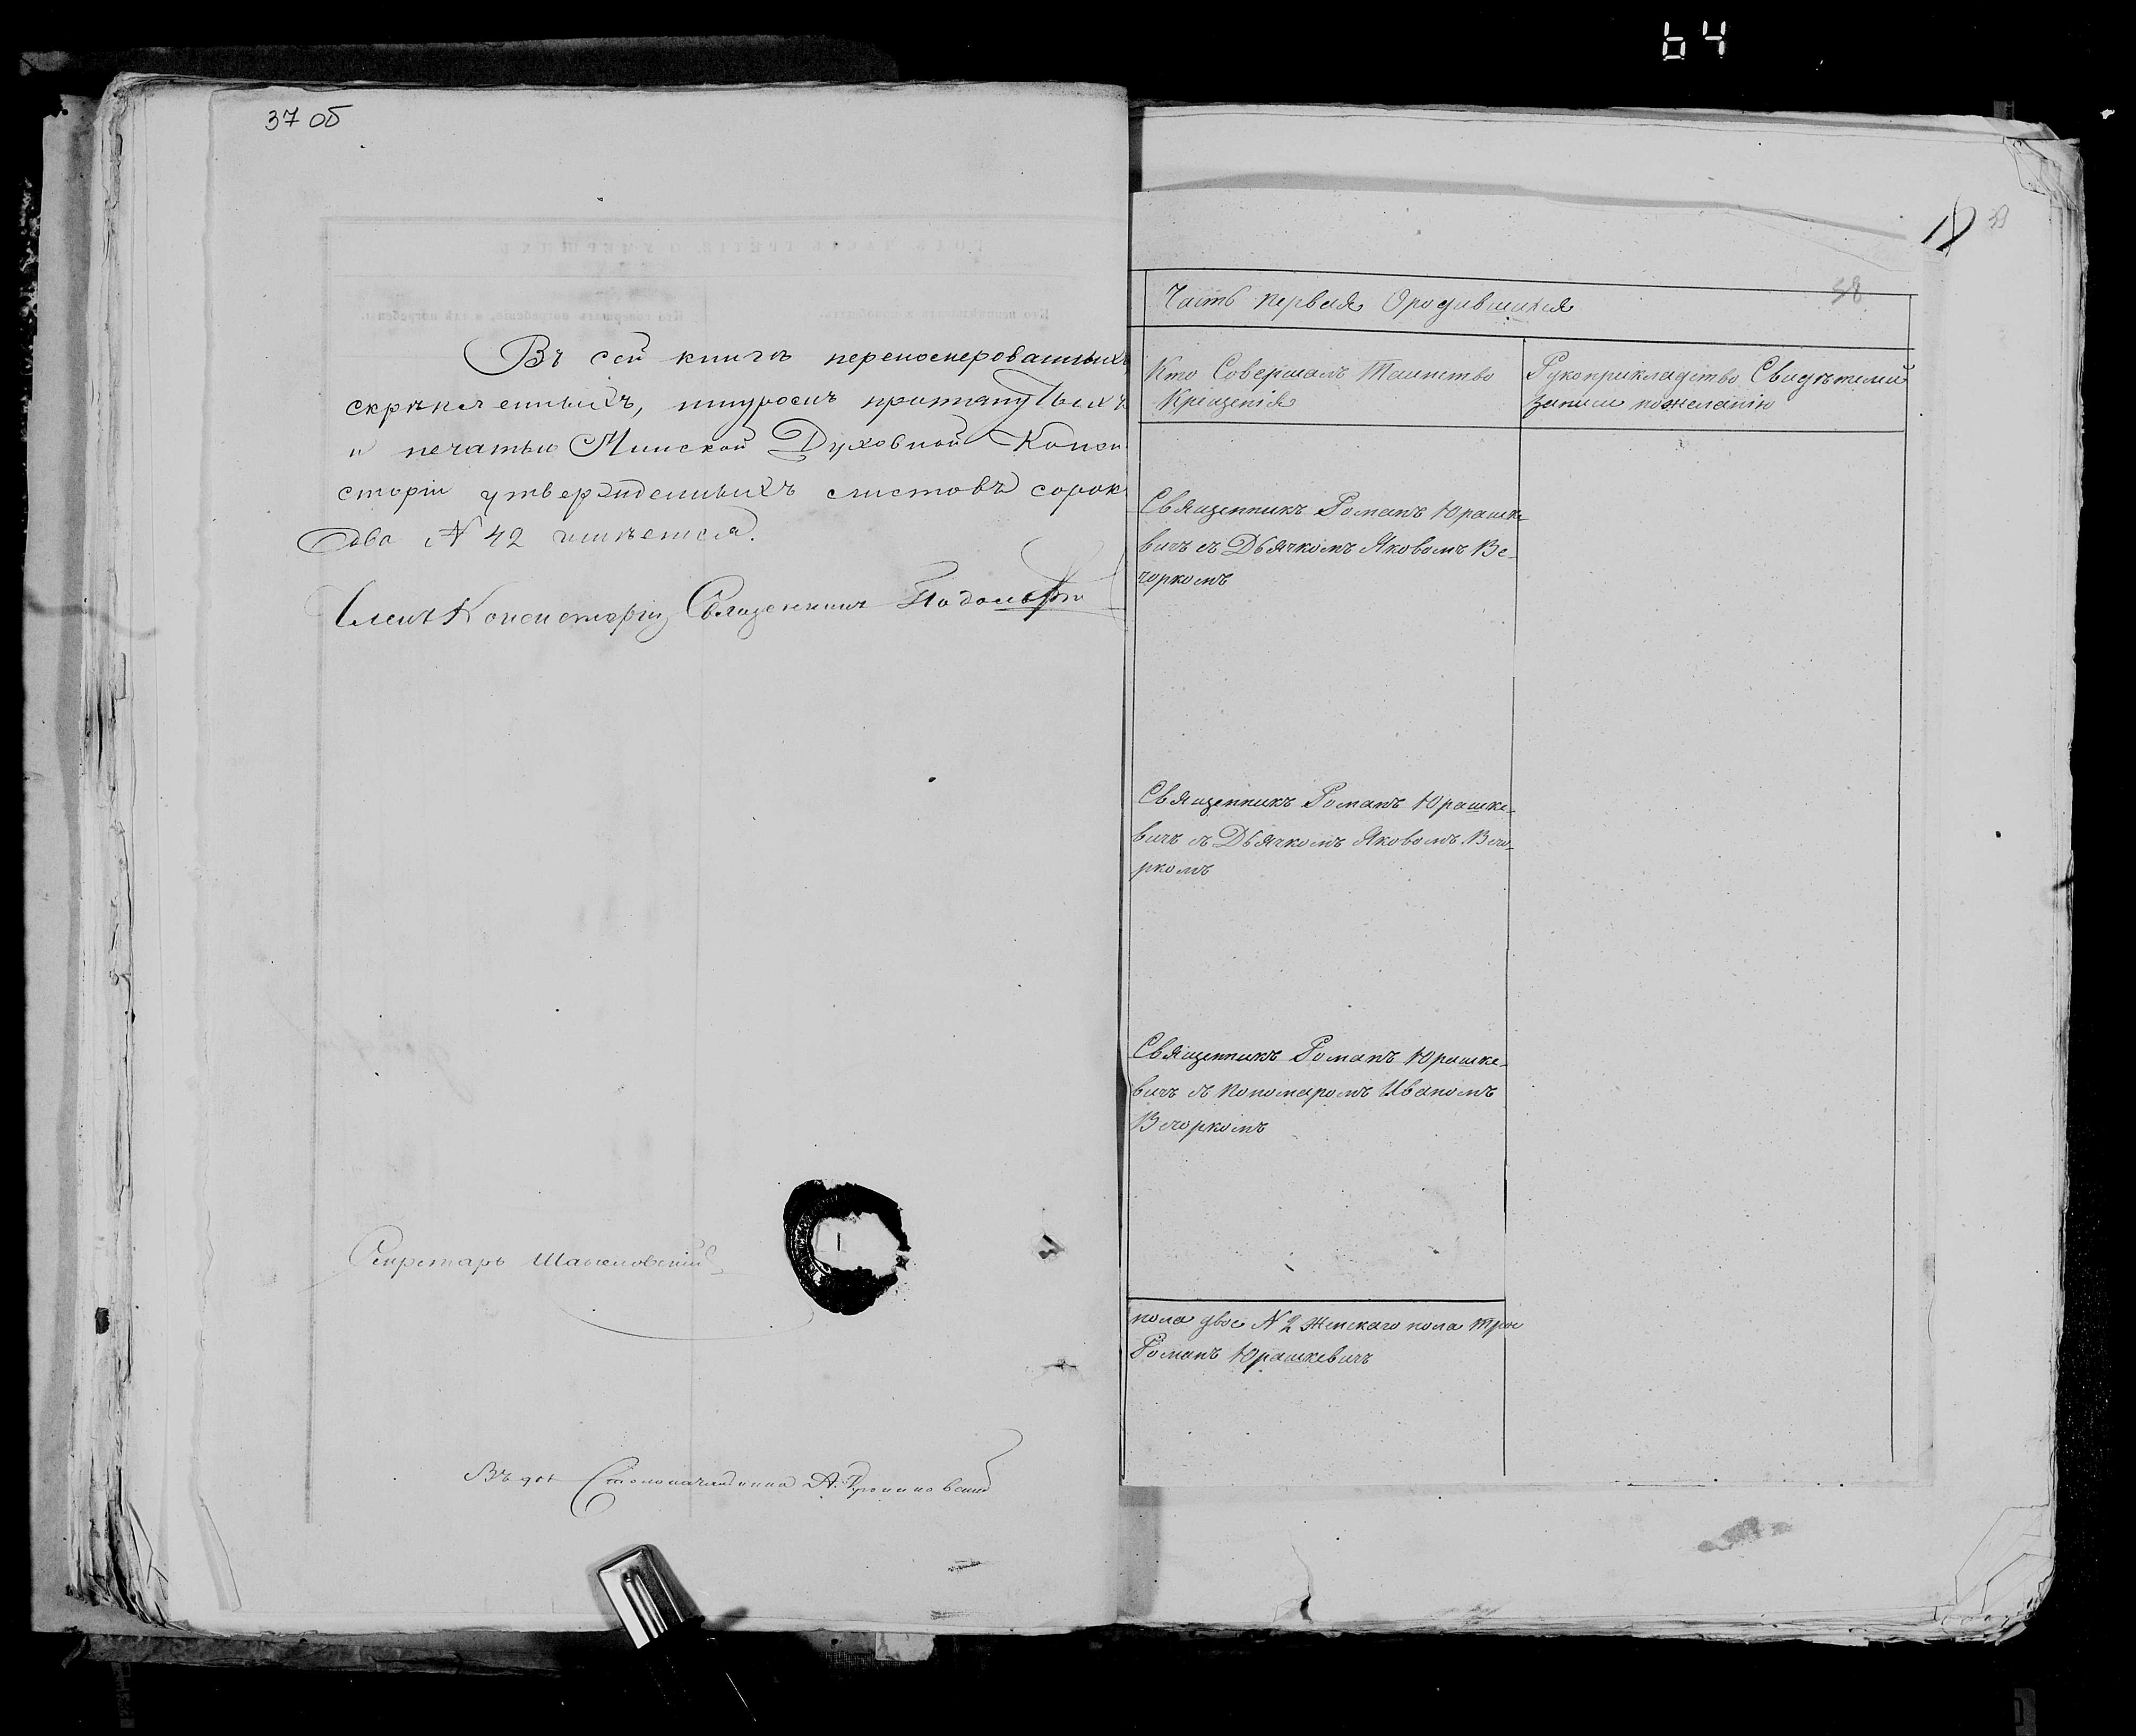 64
37 об
Въ сей книгѣ перенумерованныхъ
скрѣпленныхъ, шнуромъ протянутыхъ
и печатью Минской Духовной Конси
сторіи утвержденныхъ листовъ сорок
два N 42 имѣется.
Членъ Консисторіи, Священникъ
Секретарь
Въ дол Столоначальника А.
38
Часть первая Ородившихся
Кто Совершалъ Таинство
Крещенія
Рукоприкладство Свидѣтелей
записи пожеланію
Священникъ Романъ Юрашке
вичъ съ Дьячкомъ Яковомъ Ве-
чоркомъ
Священникъ Романъ Юрашке-
вичъ съ Дьячкомъ Яковомъ Вечо-
ркомъ
Священникъ Романъ Юрашке-
вичъ съ Пономаромъ Иваномъ
Вечоркомъ
пола двое N 2 Женскаго пола трое
Романъ Юрашкевичъ